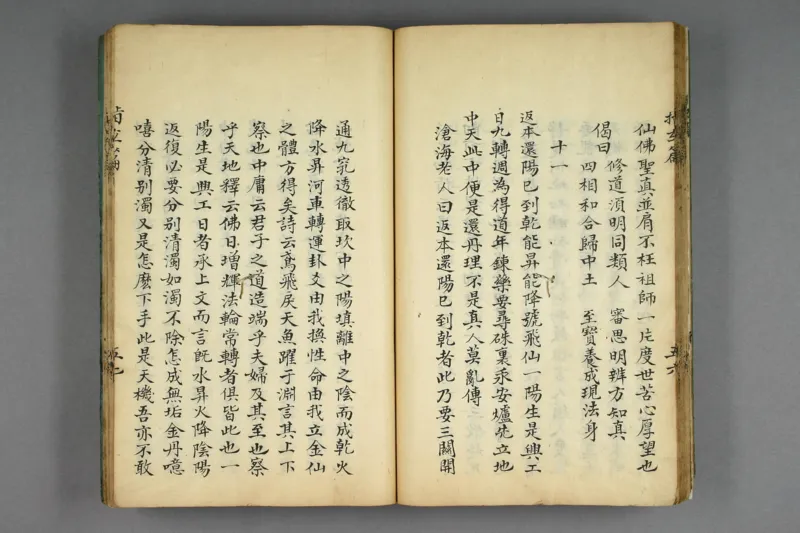 仙佛聖真並肩不枉祖師一片度世苦心厚望也
偈曰 修道須明同類人 審思明辨方知真
四相和合歸中土 至寶養成現法身
十一
返本還陽已到乾能昇能降號飛仙一陽生是興工
日九轉週為得道年鍊藥要尋硃裏汞安爐先立地
中天此中便是還丹理不是真人莫亂傳
滄海老人曰返本還陽已到乾者此乃要三關開
通九竅透徹取坎中之陽填離中之陰而成乾火
降水昇河車轉運卦爻由我換性命由我立金仙
之體方得矣詩云鳶飛戾天魚躍于淵言其上下
察也中庸云君子之道造端乎夫婦及其至也察
乎天地釋云佛日增輝法輪常轉者俱皆此也一
陽生是興工日者承上文而言既水昇火降陰陽
返復必要分別清濁如濁不除怎成無垢金丹噫
嘻分清別濁又是怎麽下手此是天機吾亦不敢
五七
五六